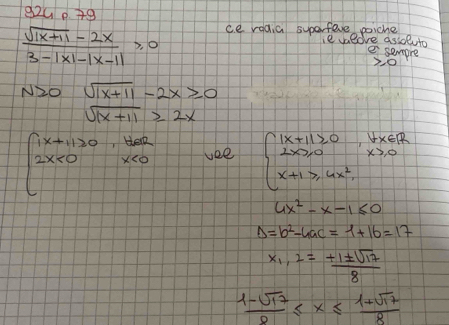 924 p 79
ce radia superflue poiche
il valore assoluto
e' sempre
≥0
√|x+1| - 2x / 3-|x|-|x-1| ≥ 0
N≥0 √|x+1| - 2x ≥ 0
√|x+1| ≥ 2x
{ |x+1| ≥ 0 , ∀x∈R
2x<0 x<0
vel
{ |x+1| ≥ 0 , ∀x∈R
2x≥0 x≥0
x+1 ≥ 4x²
4x² - x - 1 ≤ 0
Δ = b² - 4ac = 1+16 = 17
x₁,₂ = +1±√17 / 8
1-√17 / 8 ≤ x ≤ 1+√17 / 8